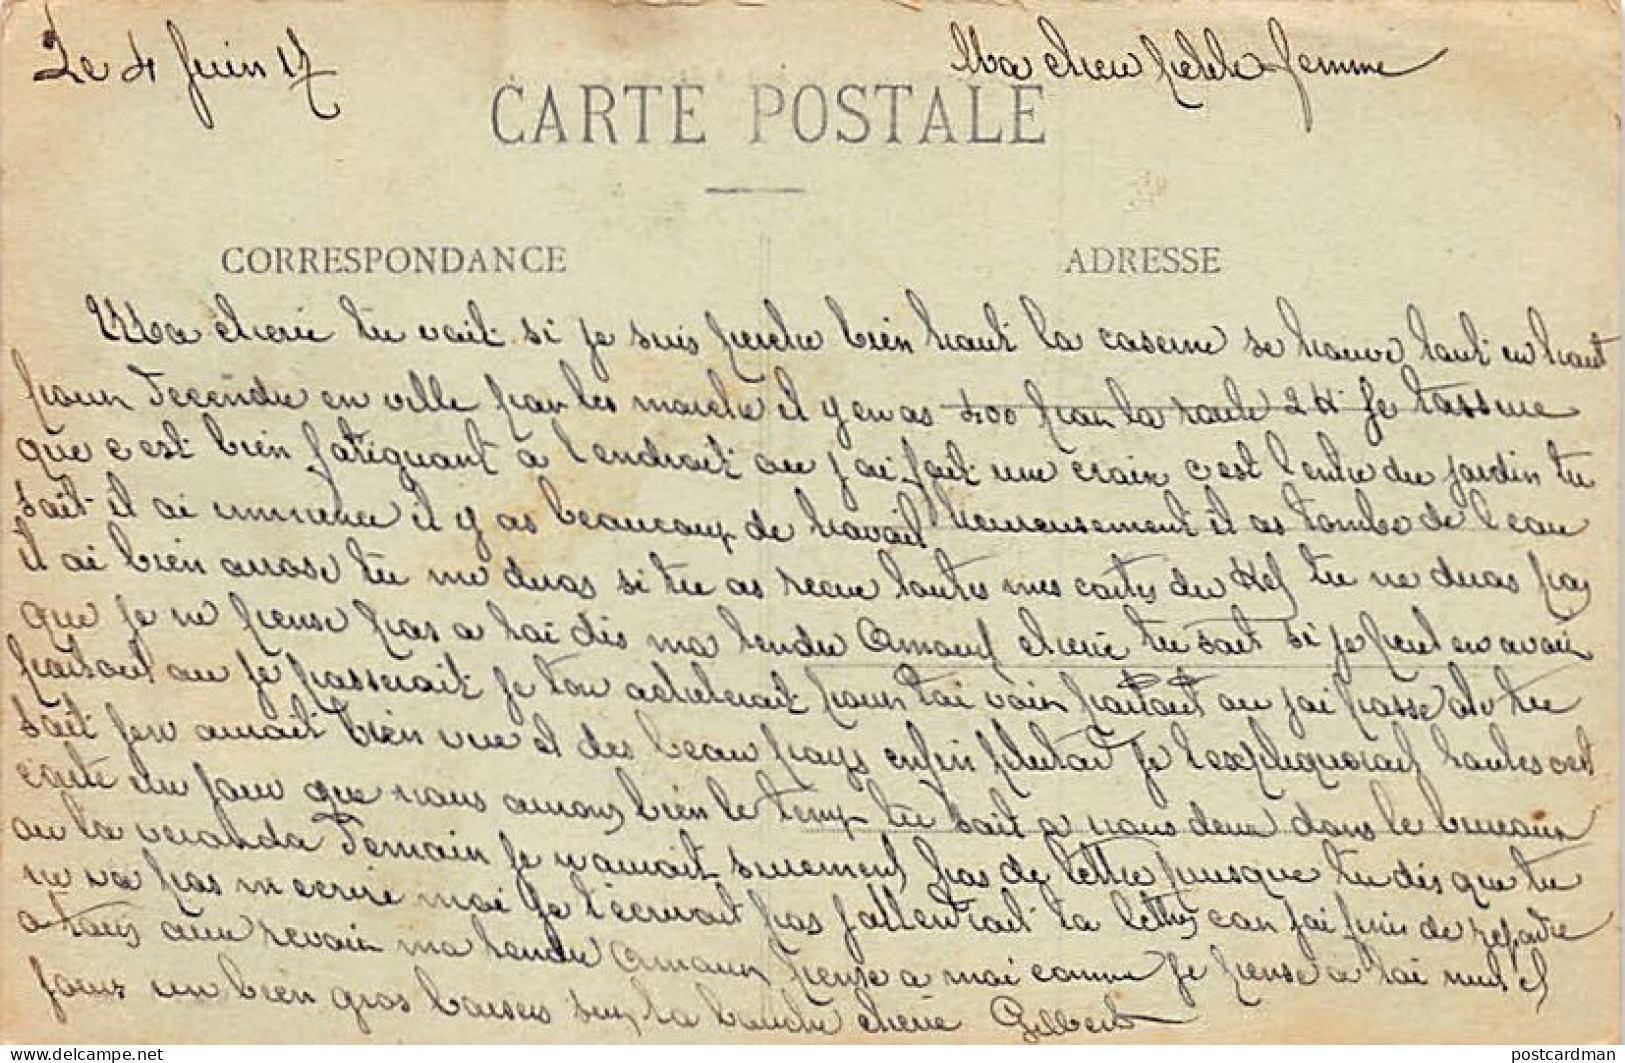 Le 4 Juin 17
Ma chere petite femme
CARTE POSTALE
CORRESPONDANCE
ADRESSE
Ma cherie tu vait si je suis perche bien haut la caserne se trouve tout en haut
pour decendre en ville par les marche il y en as 400 par la route 2 K je tassure
que c'est bien fatiguant a l'endroit ou j'ai fait une croix c'est l'entre du jardin tu
sait il ai immence il y as beaucoup de travail heureusement il as tombe de l'eau
il ai bien arrose tu me diras si tu as recue toutes mes cartes du Kef tu ne diras pas
que je ne pense pas a toi dis ma tendre Amour cherie tu sait si je peut en avoir
partout ou je passerait je ton acheterait pour toi voir partout ou j'ai passe tu
sait jen aurait bien vue et des beau pays enfin plutar je t'expliquerai toutes cest
carte un jour que nous aurons bien le temp tu sait a nous deux dans le bureau
ou la veranda Demain je n'aurait surement pas de lettre puisque tu dis que tu
ne va pas m'ecrire moi je t'ecrirait pas j'attendrait ta lettre car j'ai finis de repondre
a tous aure revoir ma tendre Amour pense a moi comme je pense a toi nuit et
jour un bien gros baiser sur ta bouche cherie Gilbert
postcardman